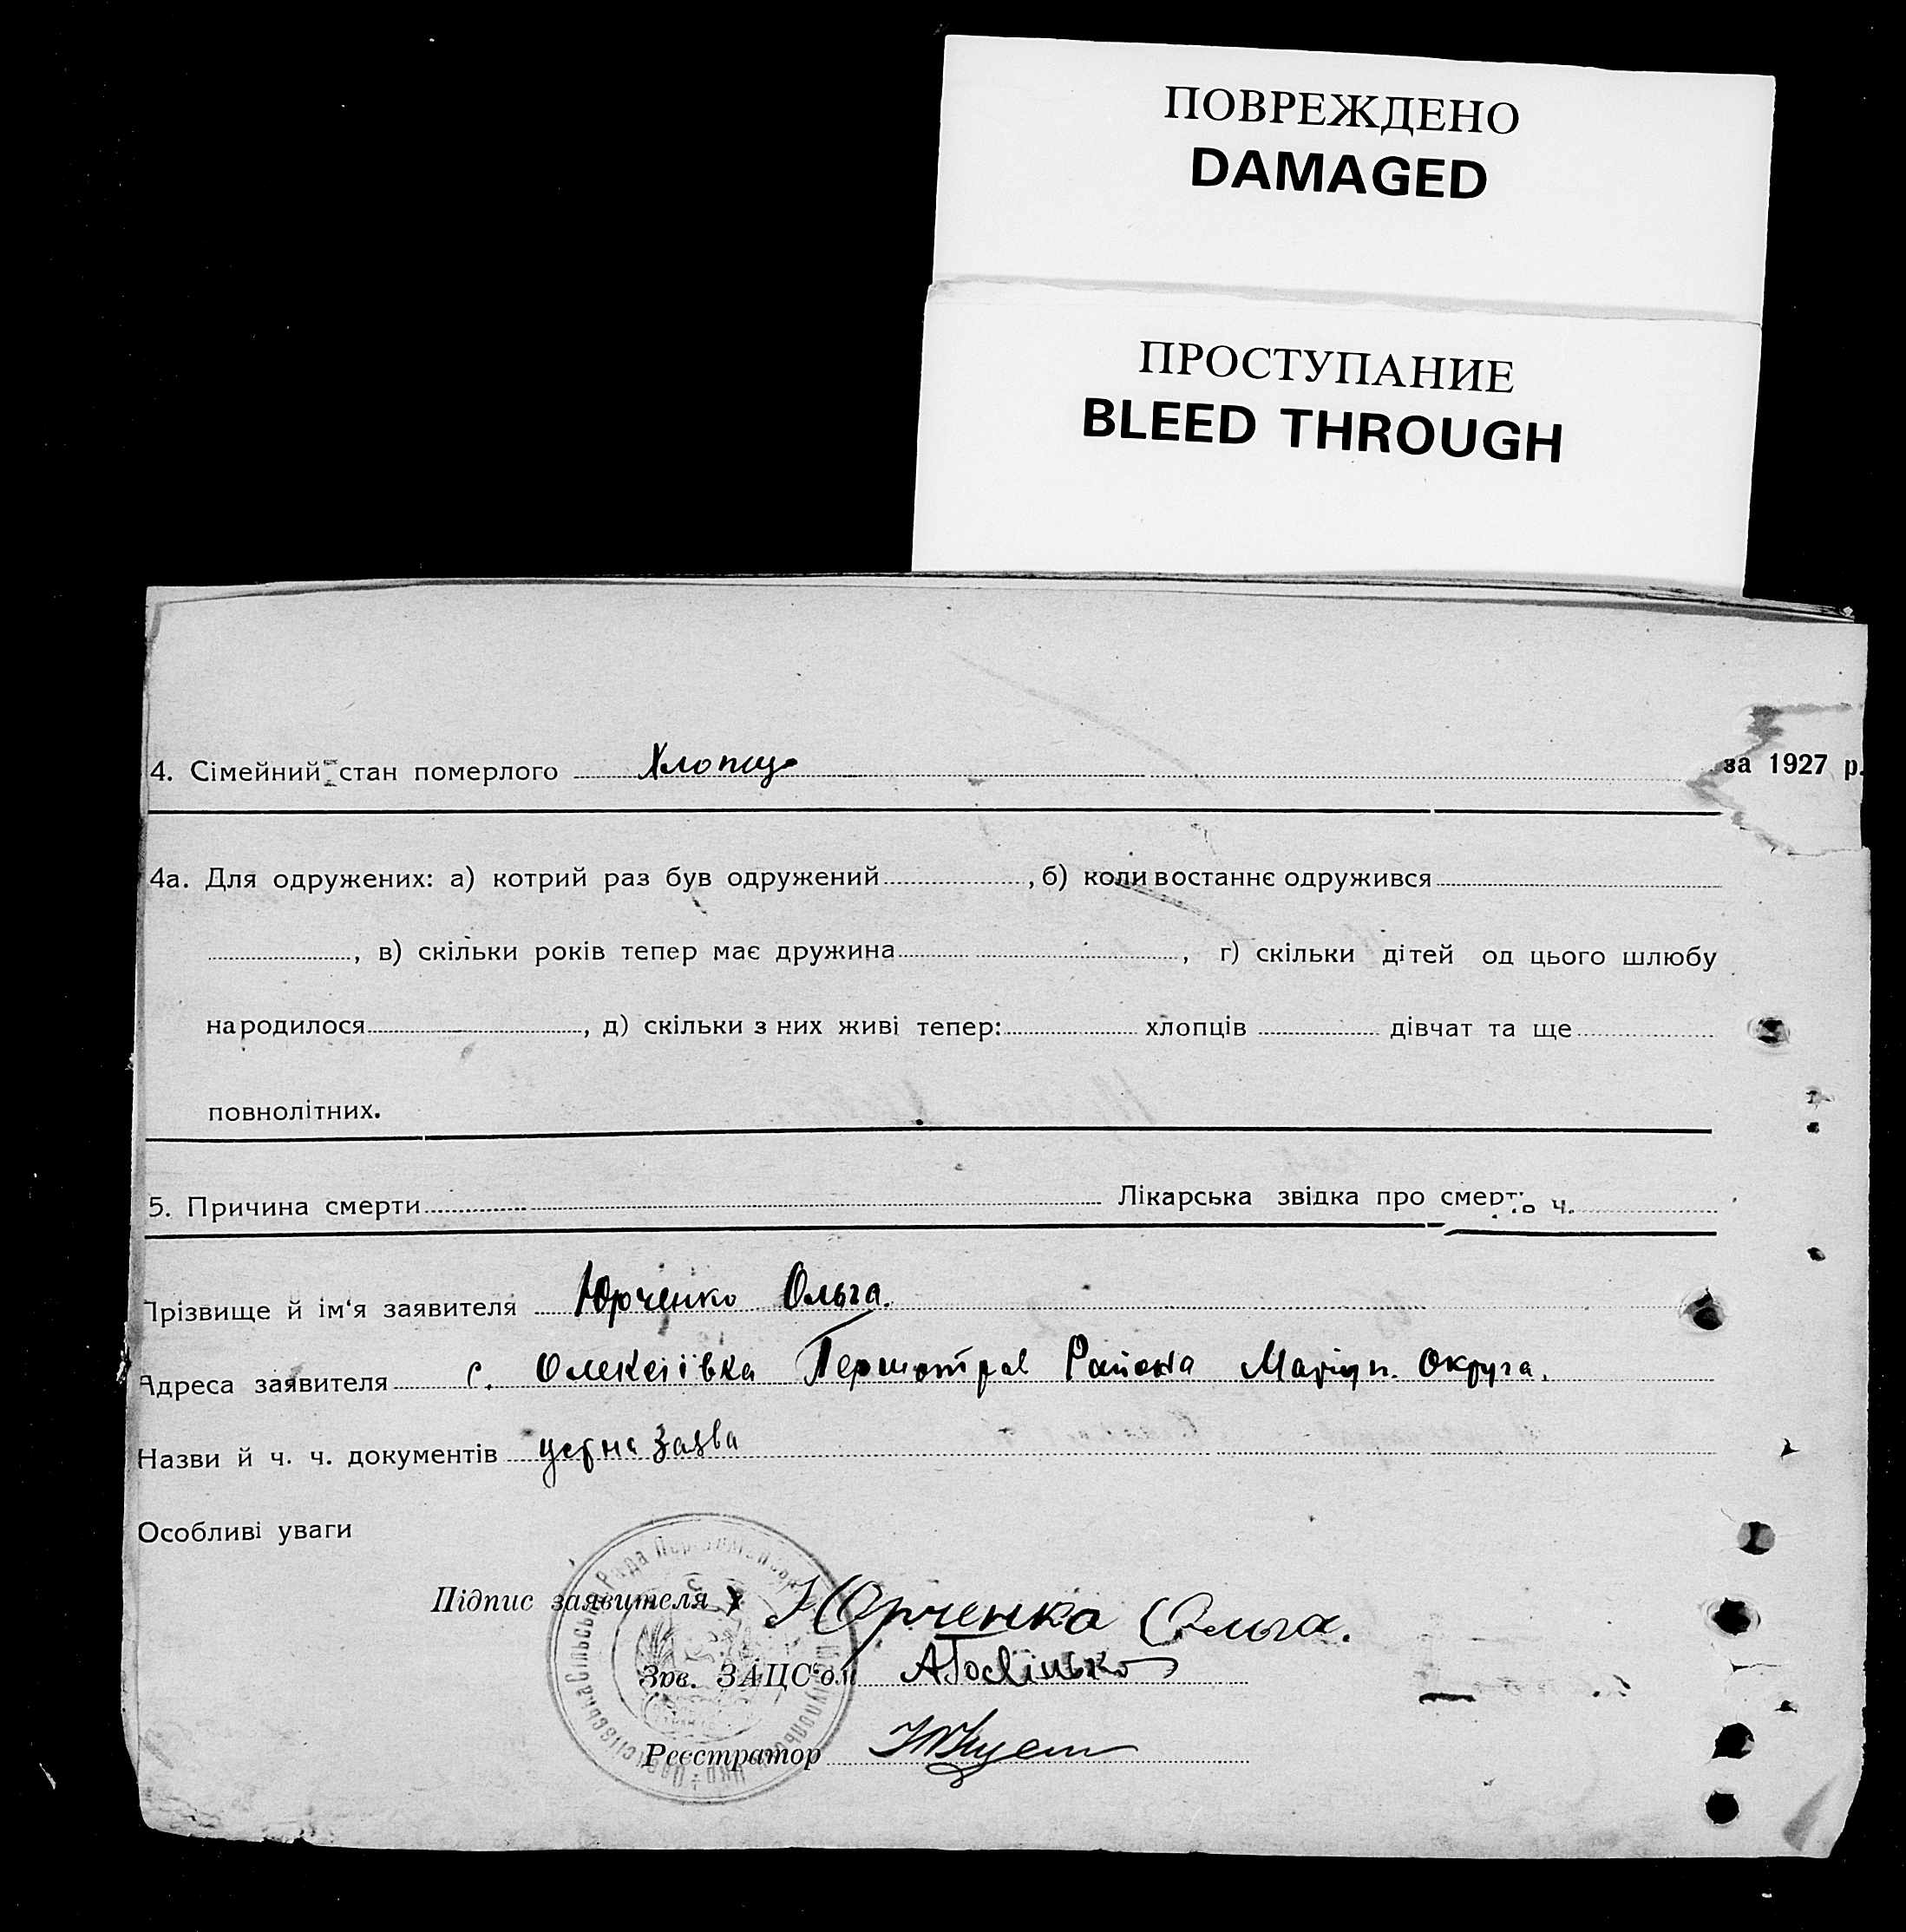 ПОВРЕЖДЕНО
DAMAGED
ПРОСТУПАНИЕ
BLEED THROUGH
4. Сімейний стан померлого Хлопец за 1927 р.
4а. Для одружених: а) котрий раз був одружений , б) коли востаннє одружився
, в) скільки років тепер має дружина , г) скільки дітей од цього шлюбу
народилося , д) скільки з них живі тепер: хлопців дівчат та ще
повнолітних.
5. Причина смерти Лікарська звідка про смерть ч.
Прізвище й ім'я заявителя Юрченко Ольга.
Адреса заявителя с. Олексіївка Першотрав Района Маріуп. Округа.
Назви й ч. ч. документів устна заява
Особливі уваги
Підпис заявителя Юрченка Ольга.
Зав. ЗАЦС'ом
Реєстратор
Сільська Рада